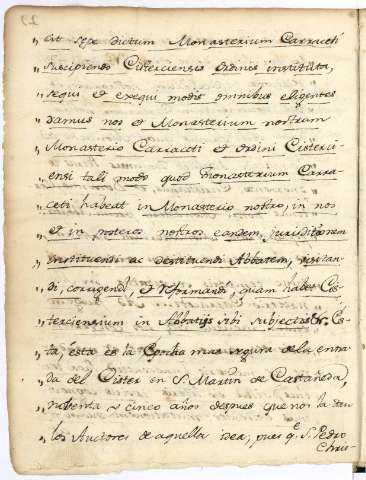 „ est sepe dictum Monasterium Carraceti
„ suscipiendo Cisterciensis Ordines instituta,
„ sequi et exequi modis omnibus eligentes
„ damus nos et Monasterium nostrum
„ Monasterio Carraceti et Ordini Cisterci-
„ ensi tali modo quod Monasterium Carra-
„ ceti habeat in Monasterio nostro, in nos
„ et in posteros nostros eandem jurisdictionem
„ instituendi ac destituendi Abbatem, visitan-
„ di, corrigendi, et reformandi, quam habet Cis-
„ terciensium in Abbatijs sibi subjectis &c. Es-
„ ta, esta es la Epocha mas segura de la entra-
„ da del Cister en S. Martin de Castañeda,
„ nobenta y cinco años despues que nos la dan
„ los Auctores de aquella idea, pues qe. S. Pedro
Chris-